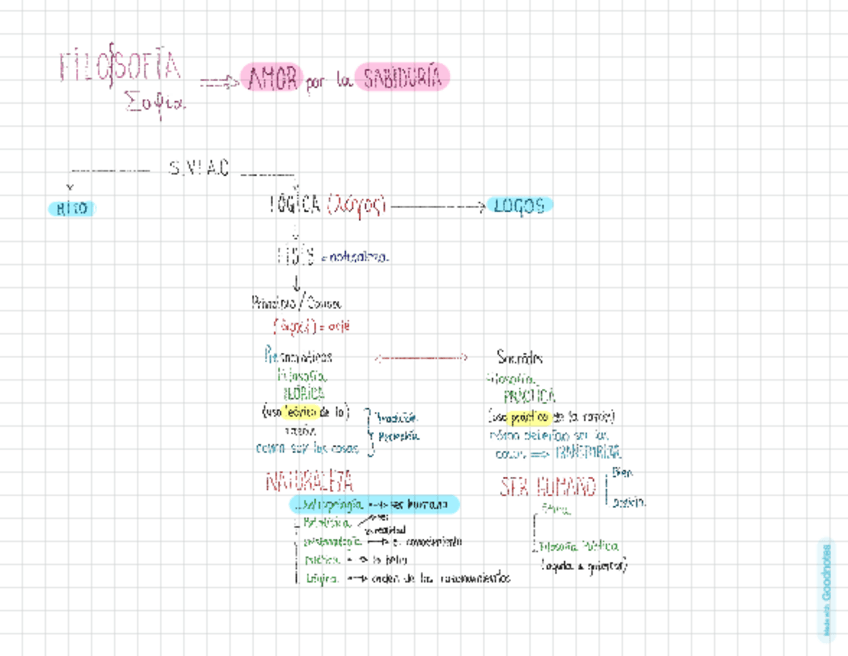 FILOSOFÍA ⟹ AMOR por la SABIDURÍA
Σοφια
S.VI A.C
MITO
LÓGICA (λόγος) → LOGOS
FISIS = naturaleza
Principio / Causa
= arjé
Presocráticos ↔ Sócrates
Filosofía
TEÓRICA
(uso teórico de la)
razón
como son las cosas
Filosofía
PRÁCTICA
(uso práctico de la razón)
cómo deberían ser las
cosas ⟹ TRANSFORMAR
NATURALEZA
SER HUMANO
Bien
Justicia
Antropología → ser humano
Metafísica
ser
realidad
Epistemología → el conocimiento
Estética → lo bello
Lógica → orden de los razonamientos
Ética
Filosofía Política
Made with Goodnotes